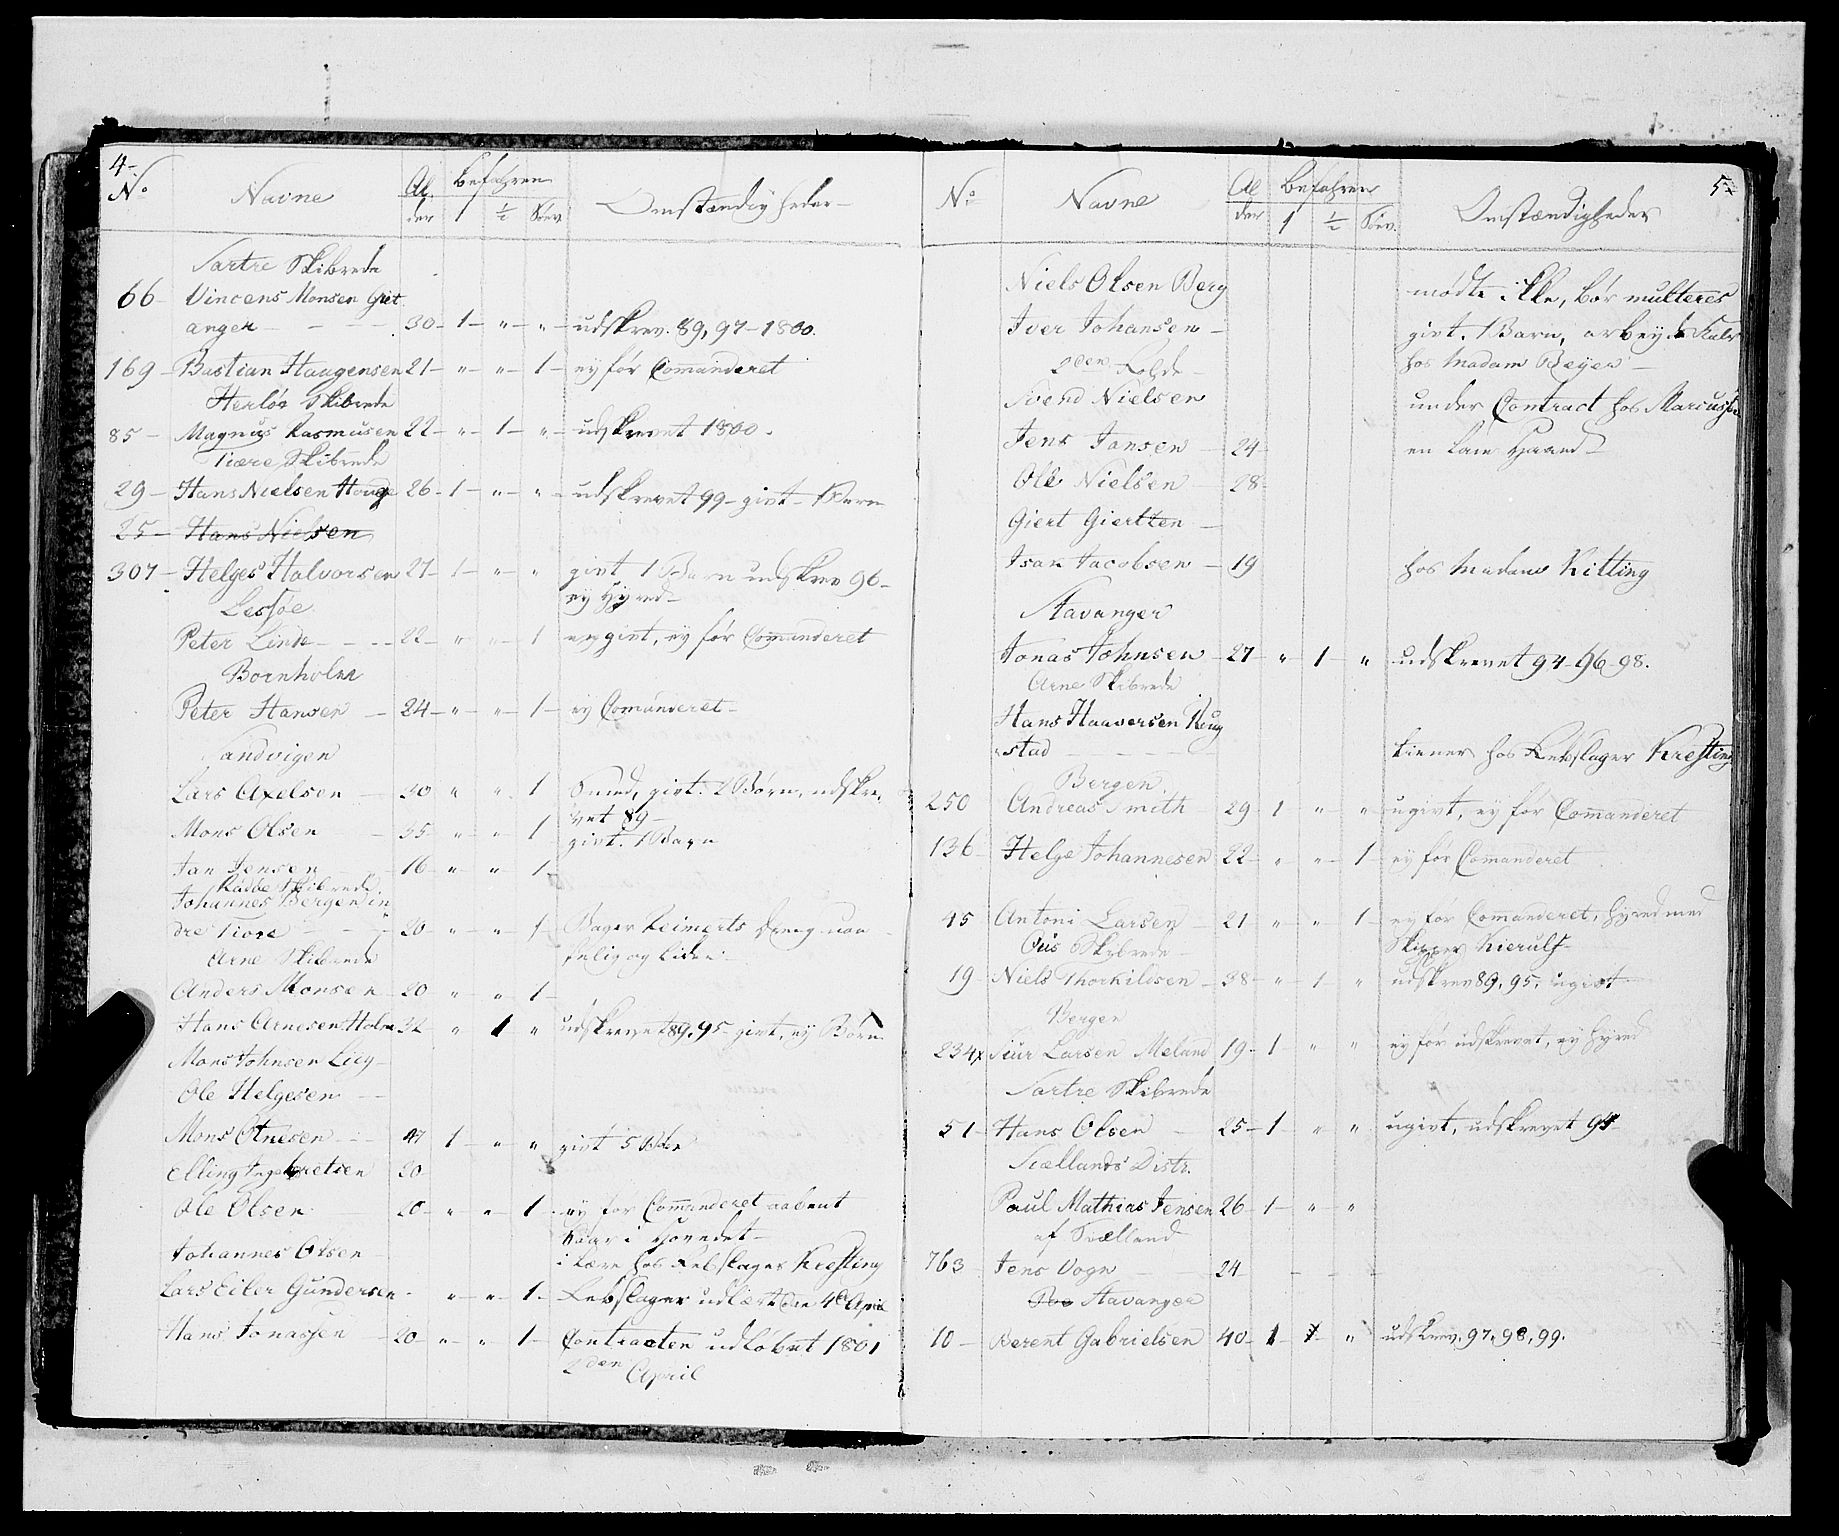 4.
No Navne Al der Befahren 1 1/2 Söev Omstændigheder
Sartre Skibrede
66 Vincens Monsen Griet
anger 30 1 " " udskrev. 89, 97-1800.
169 Bastian Haugensen 21 " " 1 ey før Comanderet
Herlöe Skibrede
85 Magnus Rasmusen 22 " 1 " udskrevet 1800.
Tiære Skibrede
29 Hans Nielsen Houge 26 1 " " udskrevet 99 givt 1 Barn
25 Hans Nielsen
307 Helges Halvorsen 27 1 " " givt 1 Barn udskrev 96
ey Hyred
Lessøe
Peter Linde 22 " " 1 ey givt, ey før Comanderet
Bornholm
Peter Hansen 24 " " 1 ey Comanderet
Sandvigen
Lars Axelsen 30 " " 1 Smed, givt. 2 Børn, udskre
vet 89
Mons Olsen 35 " " 1 givt. 1 Barn
Jan Jensen 16 " " 1
Radöe Skibrede
Johannes Bergen in
dre Tiore 20 " " 1 Bager Reimerts Dreng
og liden
Arne Skibrede
Anders Monsen 20 " " 1
Hans Arnesen Holm 32 " 1 " udskrevet 89, 95 givt, ey Børn
Mons Johnsen Lieg
Ole Helgesen
Mons Otnesen 47 1 " " givt 5 Børn
Elling Ingebretsen 20
Ole Olsen 20 " " 1 ey før Comanderet aabent
Saar i Hovedet
Johannes Olsen i Lære hos Rebslager Kresting
Lars Eiler Gundersen " " 1 Rebslager udlært den 4de April
Hans Jonassen 20 " " 1 Contracten udløbet 1801
2den April
5
No Navne Al der Befahren 1 1/2 Söev. Omstændigheder
Niels Olsen Berg mødte ikke, bør multeres
Iver Johansen givt. 1 Barn, arbeyds Karl
2den Rolde hos Madam Beyer
Svend Nielsen under Contract hos Marcussen
Jens Jansen 24 en lam Haand
Ole Nielsen 28
Giert Giertzen
Isak Jacobsen 19 hos Madam Kitting
Stavanger
Jonas Johnsen 27 " 1 " udskrevet 94-96-98.
Arne Skibrede
Hans Haaversen Reug
stad tiener hos Rebslager Kresting
Bergen
250 Andreas Smith 29 1 " " ugivt, ey før Comanderet
136 Helge Johannesen 22 " " 1 ey før Comanderet
45 Antoni Larsen 21 " " 1 ey før Comanderet, hyred med
Skipper Kierulf
Ous Skibrede
19 Niels Thorkildsen 38 " 1 " udskrev 89, 95, ugivt
Bergen
234 Siur Larsen Meland 19 1 " " ey før udskrevet, ey hyred
Sartre Skibrede
51 Hans Olsen 25 1 " " ugivt, udskrevet 94
Siællands Distr.
Poul Mathias Jensen 26 1 " "
af Siælland
763 Jens Vogn 24 - - -
Stavanger
10 Berent Gabrielsen 40 1 1 " udskrev. 97, 98, 99.